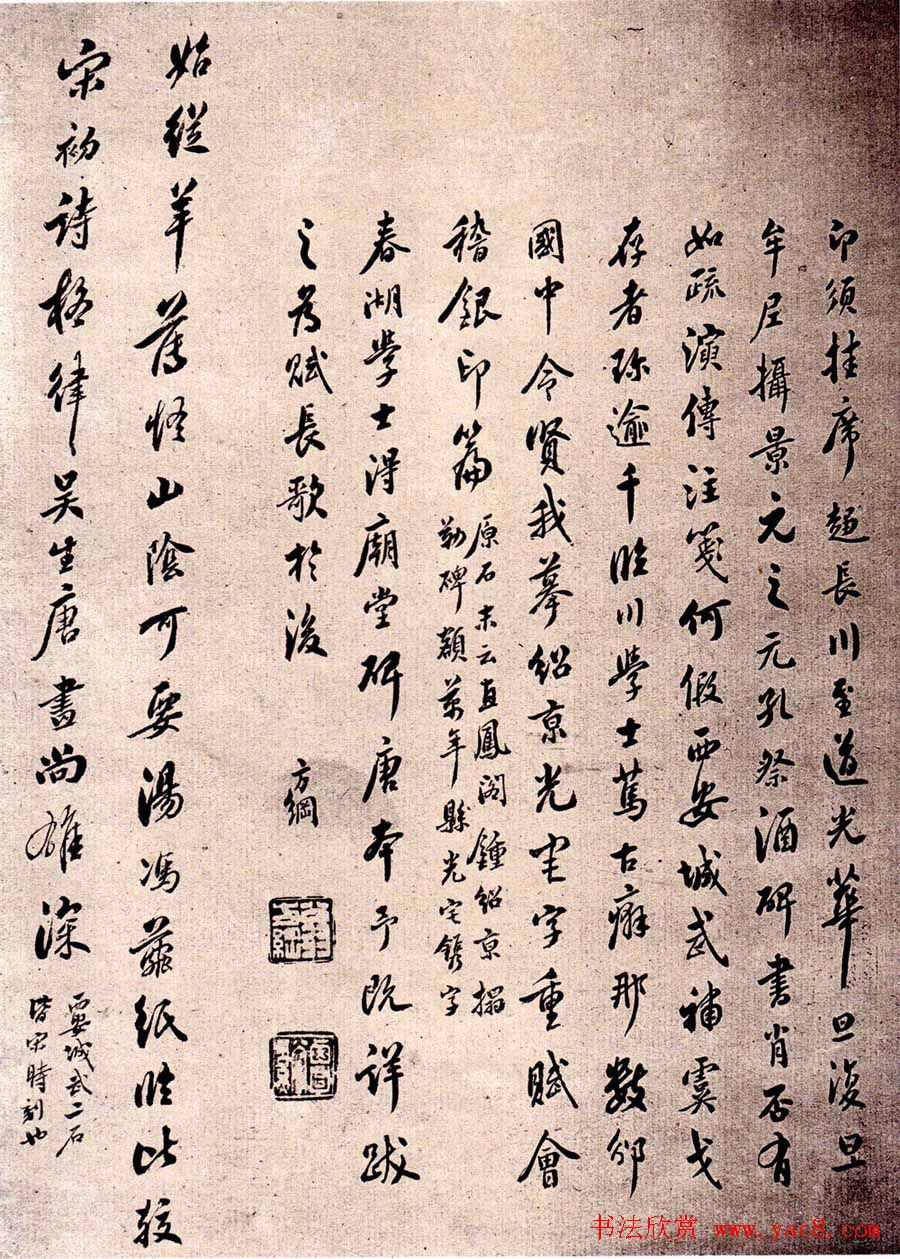 印須挂席趍長川至道光華旦復旦
牟尼攝景元之元孔祭酒碑書肖否有
如疏演傳注箋何假西安城武補虞戈
存者珎逾千臨川學士篤古癖那數邻
國中令賢我摹紹京光宅字重賦會
稽銀印篇
原石末云直鳳閣鍾紹京搨
勒碑額萬年縣光宅鐫字
春湖學士得廟堂碑唐本予既詳跋
之為賦長歌於後
方綱
始從羊薄悟山陰可要湯馮繭紙臨比較
宋初詩格律々吴生唐畫尚雄深
西安城武二石
皆宋時刻也
书法欣赏 www.yac8.com